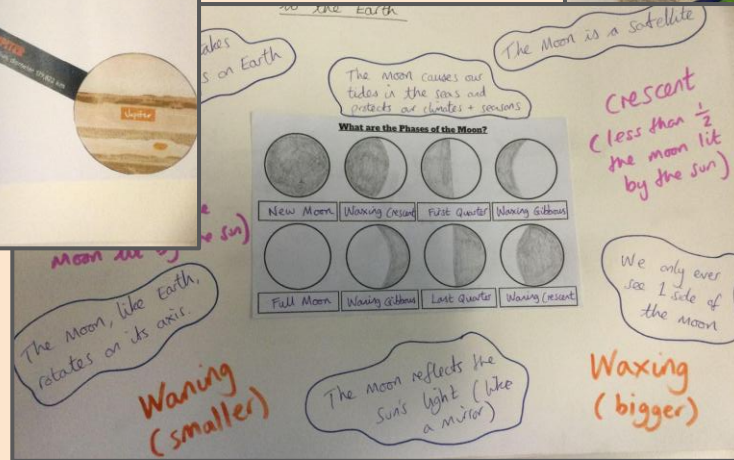 to the Earth
akes
s on Earth
The Moon causes our
tides in the seas and
protects our climates + seasons
The Moon is a satellite
Crescent
(less than 1/2
the moon lit
by the sun)
Jupiter
What are the Phases of the Moon?
New Moon
Waxing Crescent
First Quarter
Waxing Gibbous
Full Moon
Waning Gibbous
Last Quarter
Waning Crescent
Moon lit by the sun)
We only ever
see 1 side of
the Moon
The Moon, like Earth,
rotates on its axis.
Waning
(smaller)
The Moon reflects the
Sun's light (like
a mirror)
Waxing
(bigger)